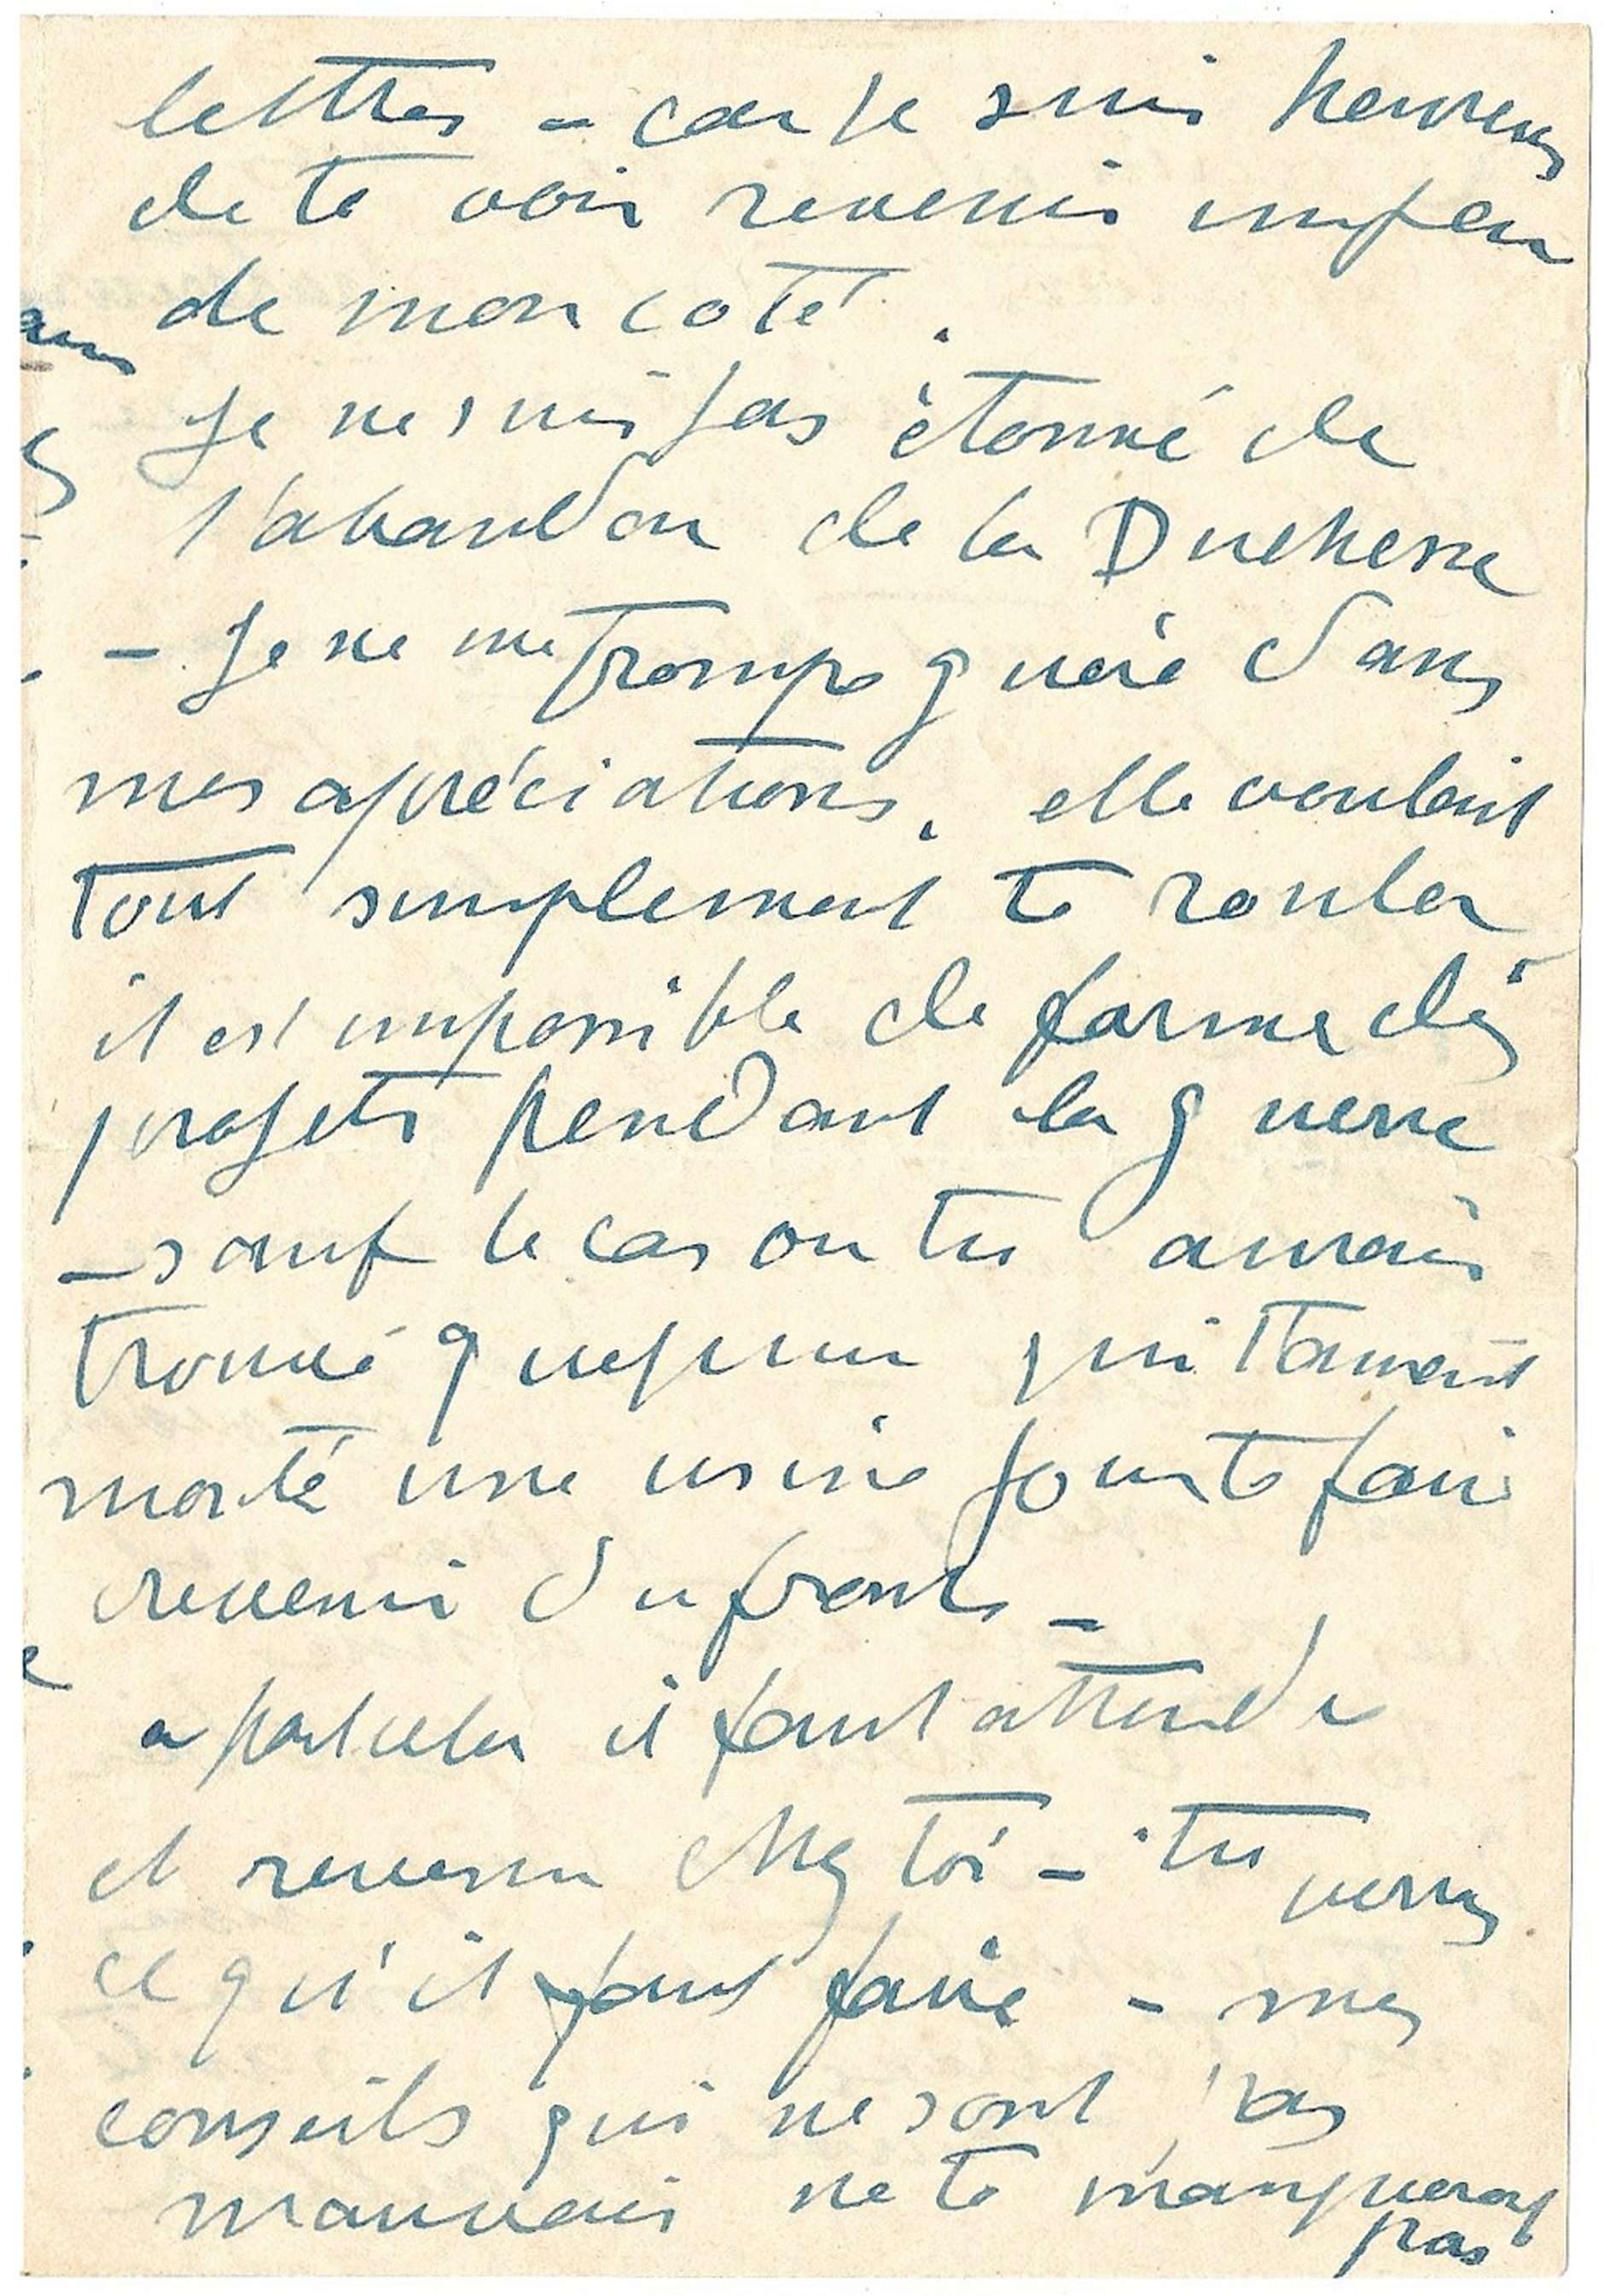 lettres - car je suis heureux
de te voir revenir un peu
de mon coté.
Je ne suis pas étonné de
l'abandon de la Duchesse
- Je ne me trompe guère dans
mes apréciations. elle voulait
tout simplement te rouler
il est impossible de forme des
projets pendant la guerre
- sauf le cas ou tu aurais
trouvé quequn qui
monté une usine pour te faire
revenir du front -
a part cela il faut attendre
et revenu chez toi - tu verras
ce qu'il faut faire - mes
conseils qui ne sont pas
mauvais ne te manqueront
pas